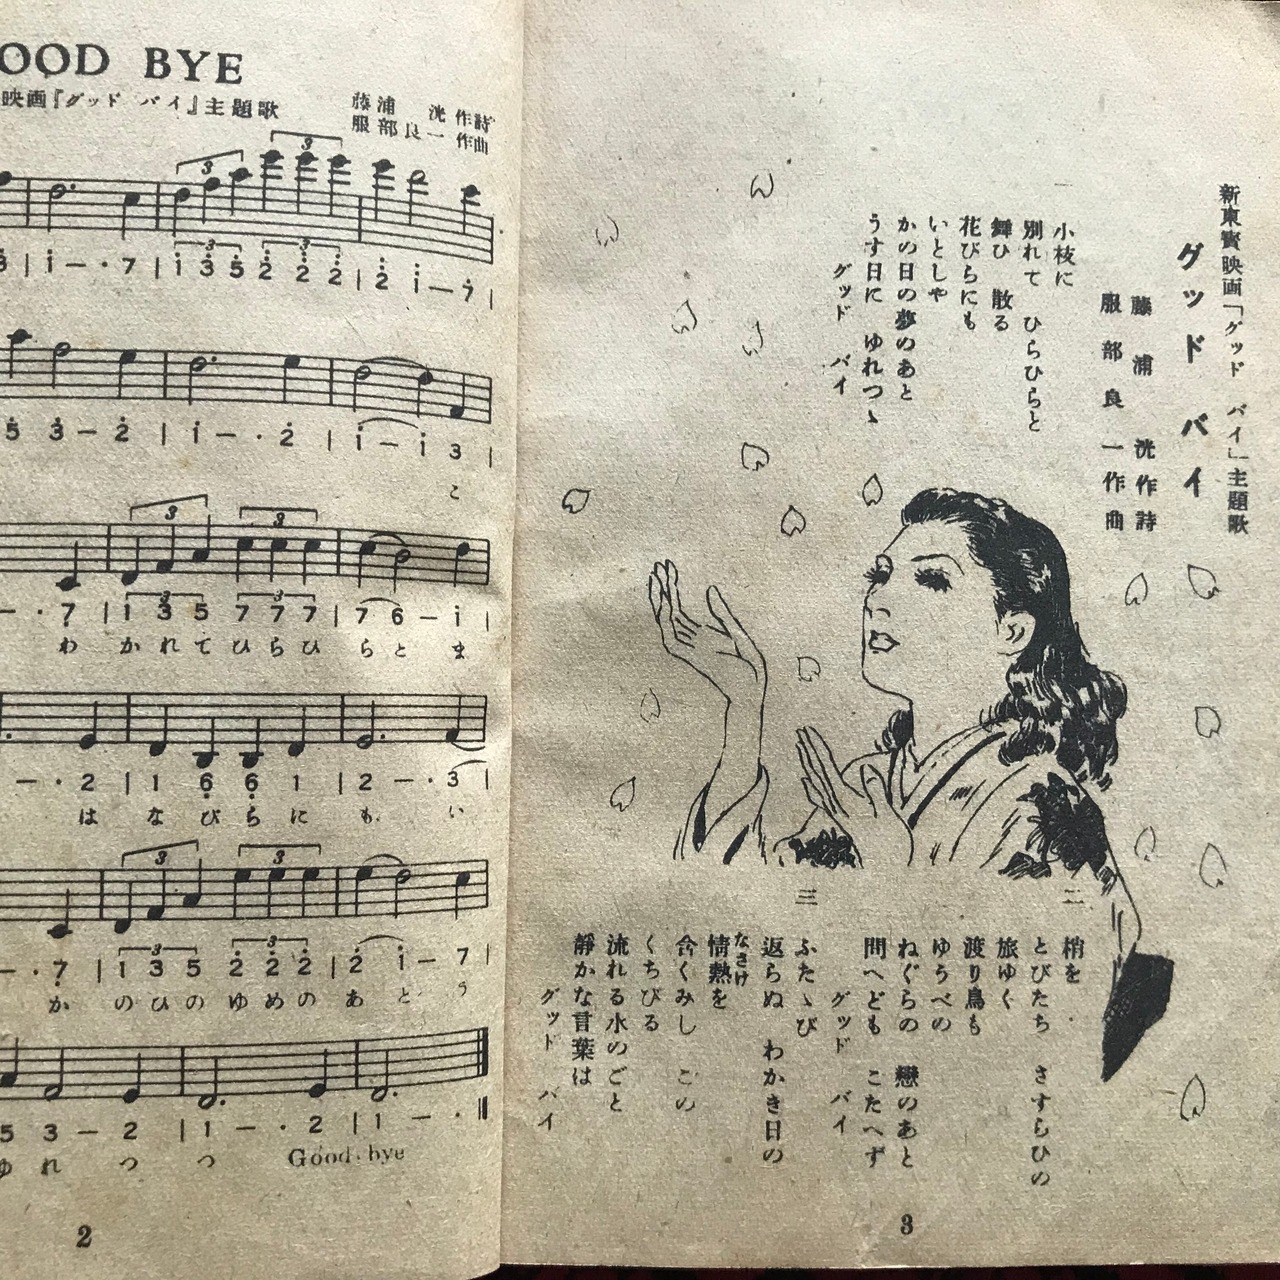 OOD BYE
映画『グッド バイ』主題歌
藤浦 洸 作詩
服部良一 作曲
3 3
3 | i — · 7 | i 3 5 2 2 2 | 2 i — 7 |
5 3 — 2 | i — · 2 | i — i 3 |
こ
3 3
— · 7 | 1 3 5 7 7 7 | 7 6 — i |
わ かれてひらひ らと ま
— · 2 | 1 6 6 1 | 2 — · 3 |
は なびらに も い
3 3
— · 7 | 1 3 5 2 2 2 | 2 i — 7 |
か のひのゆめの あと う
5 3 — 2 | 1 — · 2 | 1 — ·
ゆ れ つ つ Good bye
2
新東寳映画「グッド バイ」主題歌
グッド バイ
藤浦 洸作詩
服部良一作曲
一
小枝に
別れて ひらひらと
舞ひ 散る
花びらにも
いとしや
かの日の夢のあと
うす日に ゆれつゝ
グッド バイ
二
梢を
とびたち さすらひの
旅ゆく
渡り鳥も
ゆうべの
ねぐらの 戀のあと
問へども こたへず
グッド バイ
三
ふたゝび
返らぬ わかき日の
情熱を
なさけ
含くみし この
くちびる
流れる水のごと
靜かな言葉は
グッド バイ
3